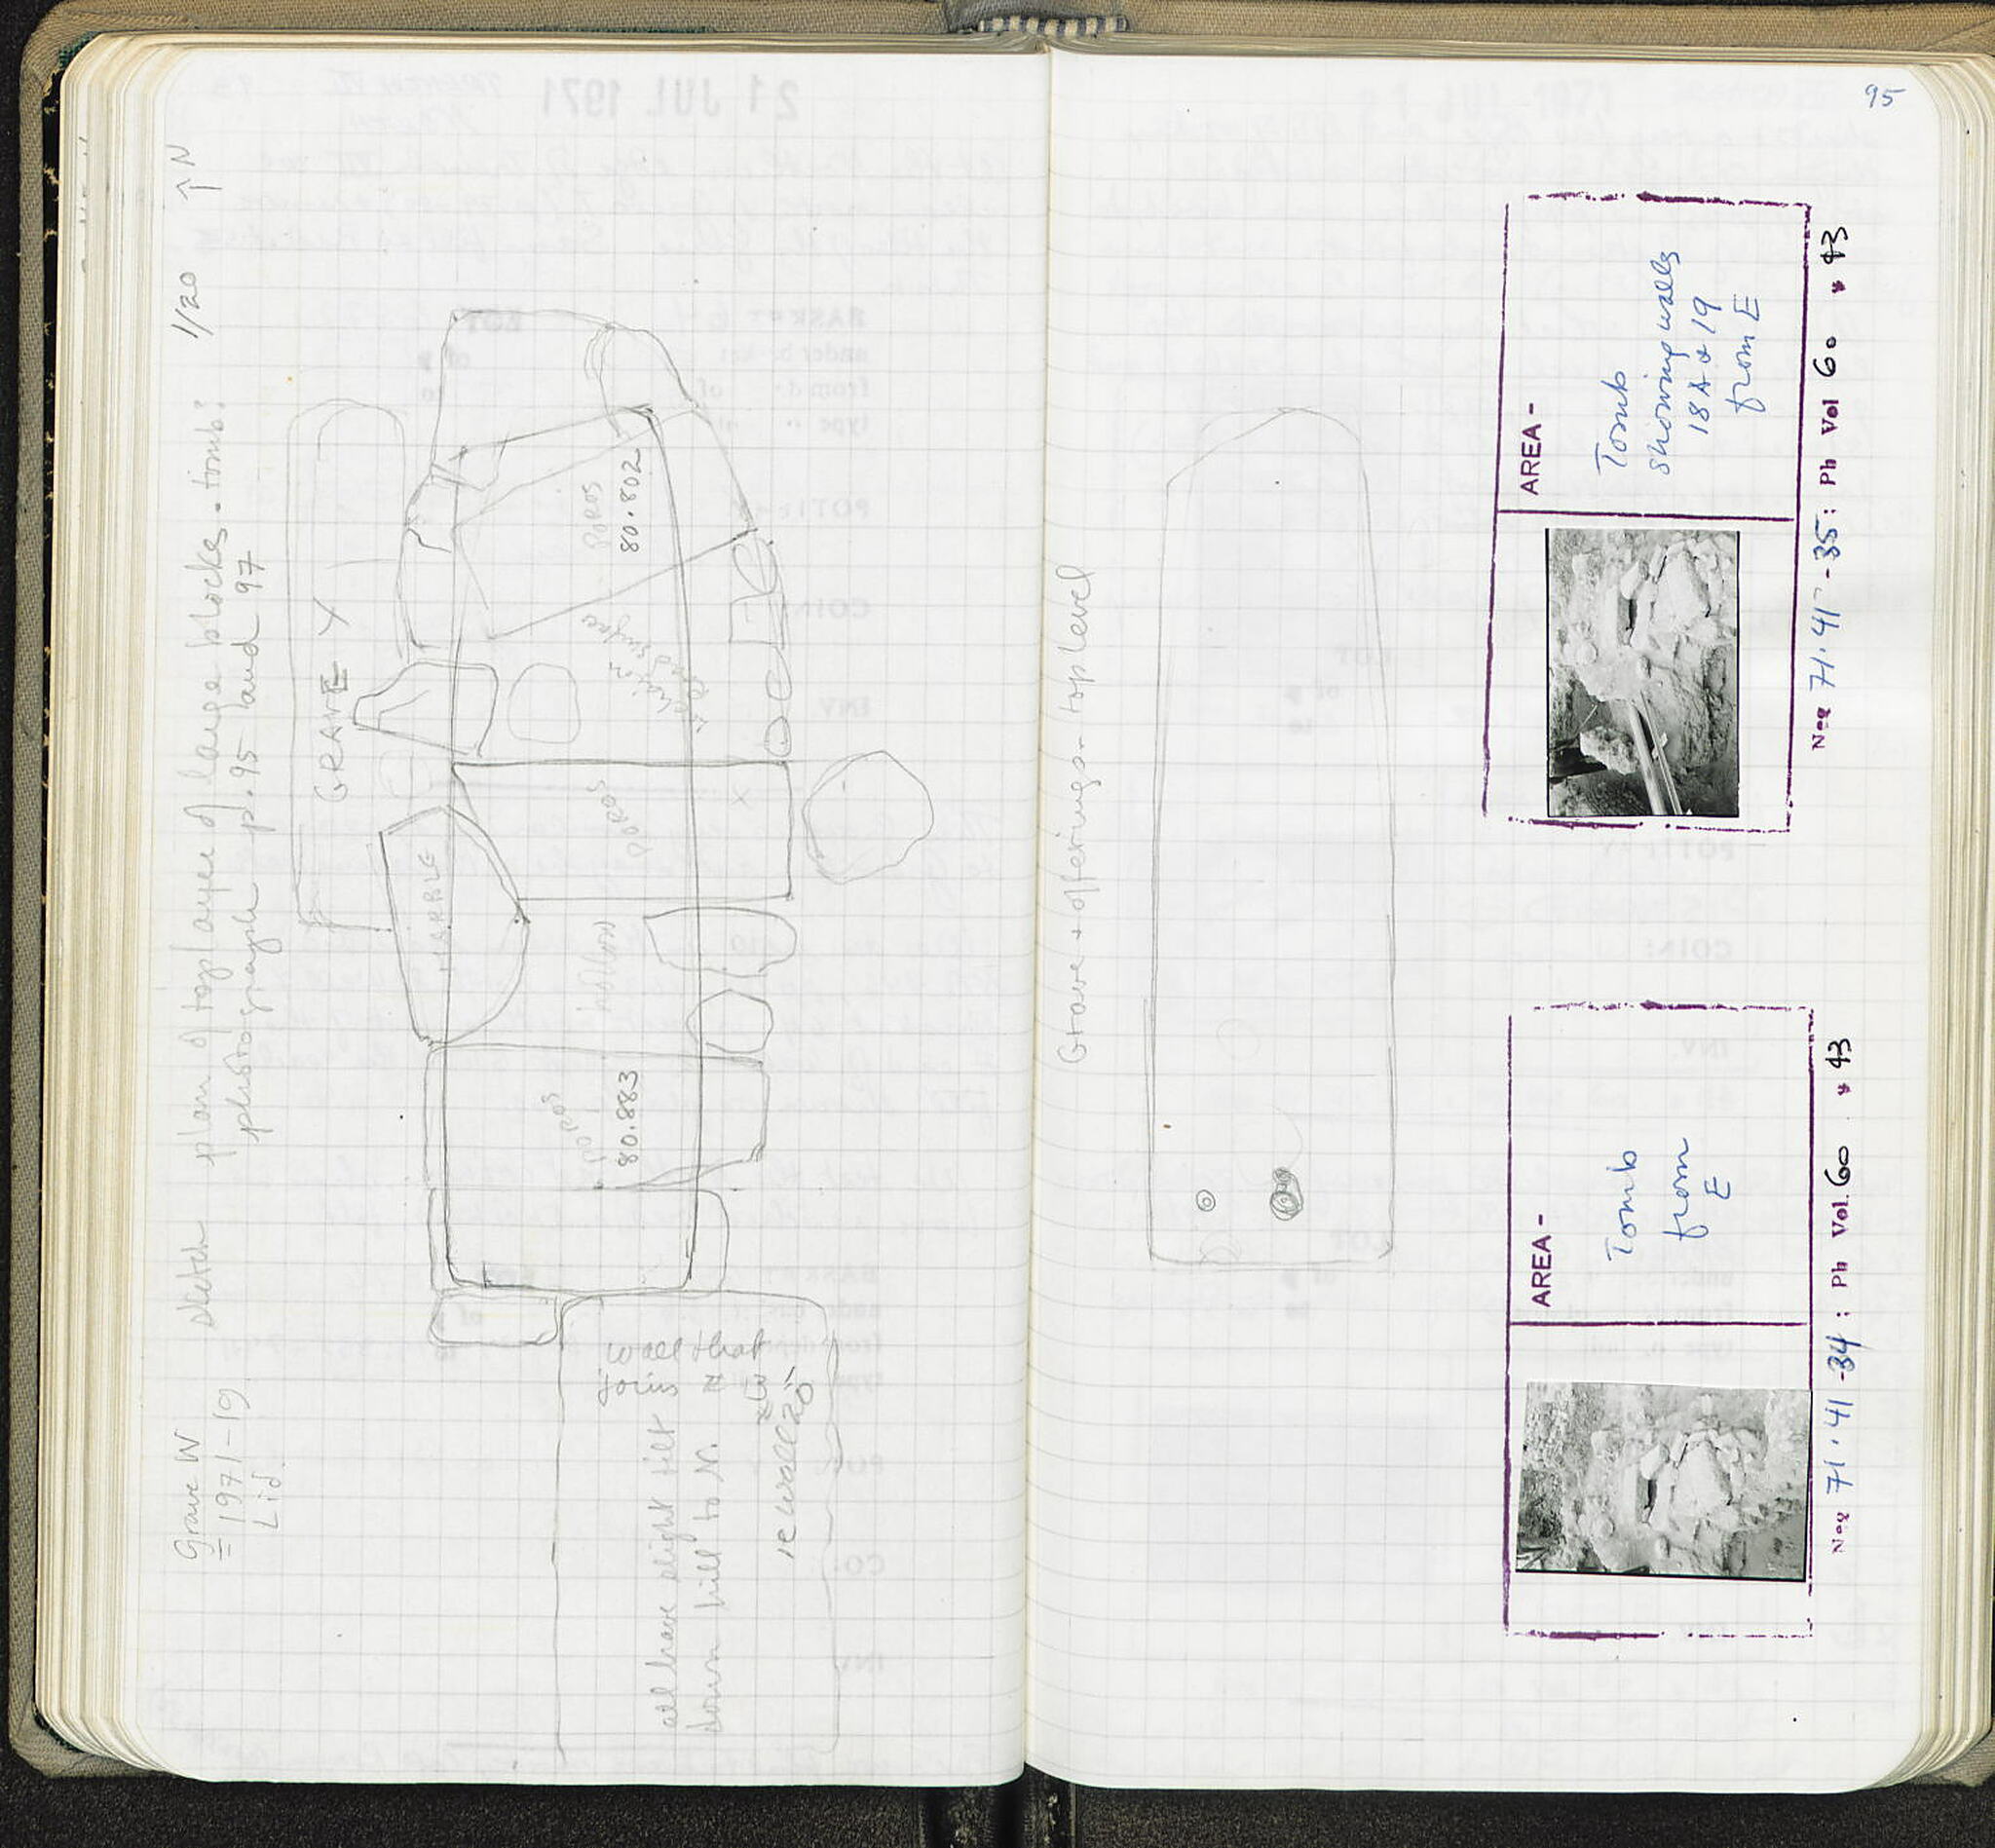 Grave W
= 1971-19
Lid
sketch plan of top layer of large blocks - tomb?
photograph p. 95 and 97
1/20
↑N
GRAVE Y
MARBLE
POROS
80.802
POROS
hollow
POROS
80.883
X
wall that
joins
ie wall 20
all have slight tilt
down hill to N.
Grave + offerings - top level
95
AREA -
Tomb
showing walls
18A & 19
from E
Neg 71.41-35: Ph Vol 60 43
AREA -
Tomb
from
E
Neg 71.41-34: Ph Vol 60 43